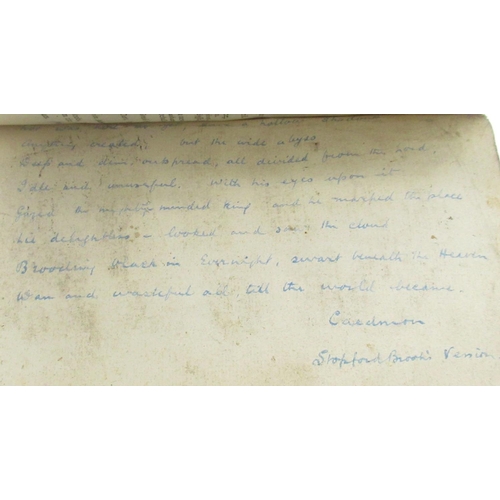 created; but the wide abyss
Deep and dim, outspread, all divided from the Lord,
Idle and unuseful. With his eyes upon it
Gazed the mighty-minded King and he marked the place
lie delightless – looked and saw the cloud
Brooding black in Evernight, swart beneath the Heaven
Wan and wasteful all, till the world became.
Caedmon
Stopford Brook's Version